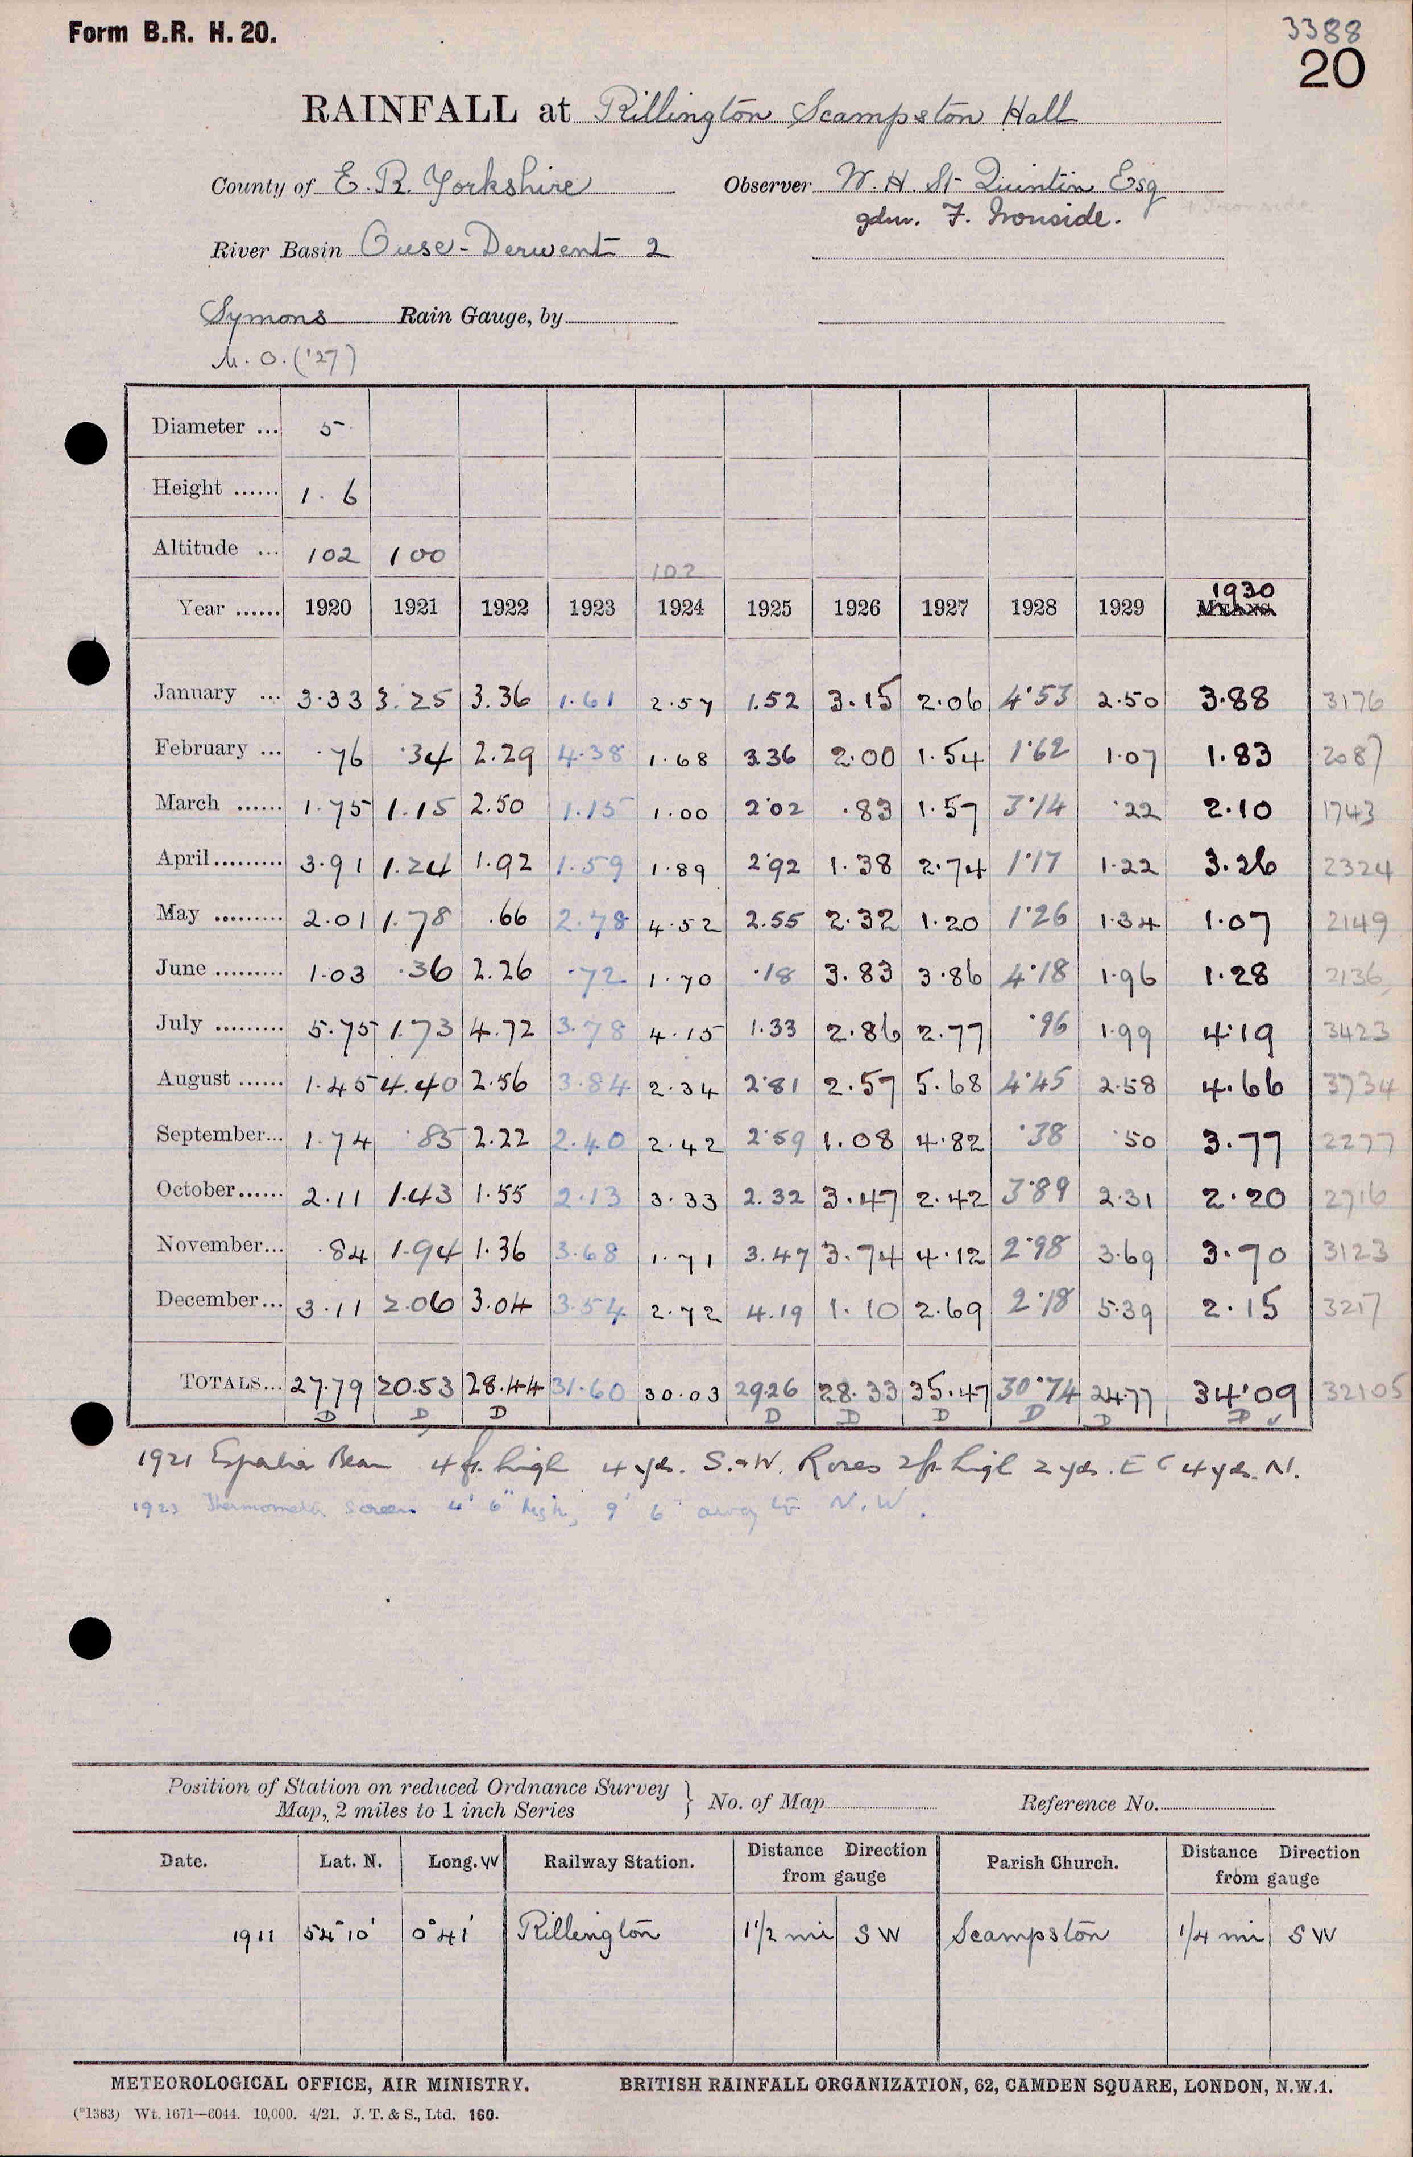 Form B.R. H. 20.
3388
20
RAINFALL at Rillington Scampston Hall
County of E. R. Yorkshire Observer W. H. St Quintin Esq
gdnr. F. Ironside.
River Basin Ouse-Derwent 2
Symons Rain Gauge, by
M. O. ('27)
Diameter ... 5
Height ...... 1.6
Altitude ... 102 100 102
1930
Year ...... 1920 1921 1922 1923 1924 1925 1926 1927 1928 1929 MEANS
January ... 3.33 3.25 3.36 1.61 2.57 1.52 3.15 2.06 4.53 2.50 3.88 3176
February ... .76 .34 2.29 4.38 1.68 3.36 2.00 1.54 1.62 1.07 1.83 2087
March ...... 1.75 1.15 2.50 1.15 1.00 2.02 .83 1.57 3.14 .22 2.10 1743
April......... 3.91 1.24 1.92 1.59 1.89 2.92 1.38 2.74 1.17 1.22 3.26 2324
May ......... 2.01 1.78 .66 2.78 4.52 2.55 2.32 1.20 1.26 1.34 1.07 2149
June ......... 1.03 .36 2.26 .72 1.70 .18 3.83 3.86 4.18 1.96 1.28 2136
July ......... 5.75 1.73 4.72 3.78 4.15 1.33 2.86 2.77 .96 1.99 4.19 3423
August ...... 1.45 4.40 2.56 3.84 2.34 2.81 2.57 5.68 4.45 2.58 4.66 3734
September... 1.74 .85 2.22 2.40 2.42 2.59 1.08 4.82 .38 .50 3.77 2277
October...... 2.11 1.43 1.55 2.13 3.33 2.32 3.47 2.42 3.89 2.31 2.20 2716
November... .84 1.94 1.36 3.68 1.71 3.47 3.74 4.12 2.98 3.69 3.70 3123
December... 3.11 2.06 3.04 3.54 2.72 4.19 1.10 2.69 2.18 5.39 2.15 3217
TOTALS... 27.79 20.53 28.44 31.60 30.03 29.26 28.33 35.47 30.74 24.77 34.09 32105
D D D D D D D D D
1921 Bean 4 ft. high 4 yds. S. & W. Roses 2 ft. high 2 yds. E 4 yds. N.
1923 Thermometer Screen 4' 6" high, 9' 6" away to N.W.
Position of Station on reduced Ordnance Survey
Map, 2 miles to 1 inch Series } No. of Map Reference No.
Date. Lat. N. Long. W Railway Station. Distance Direction from gauge Parish Church. Distance Direction from gauge
1911 54°10' 0°41' Rillington 1½ mi SW Scampston ¼ mi SW
METEOROLOGICAL OFFICE, AIR MINISTRY. BRITISH RAINFALL ORGANIZATION, 62, CAMDEN SQUARE, LONDON, N.W.1.
(*1383) Wt. 1671—6044. 10,000. 4/21. J. T. & S., Ltd. 160.